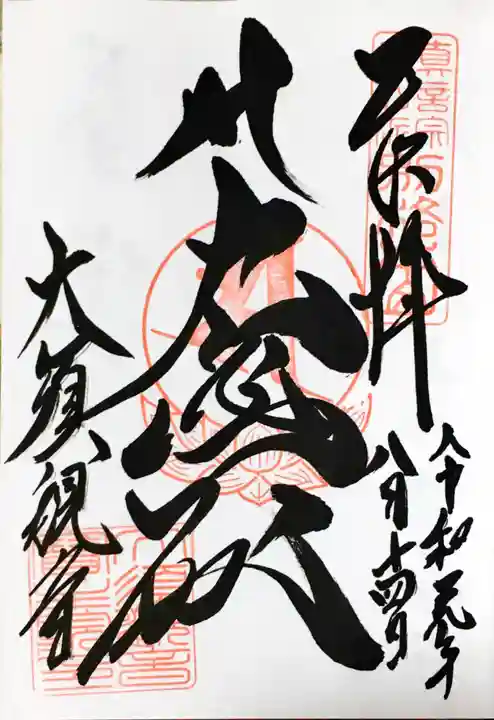 奉拝
令和元年
八月十四日
大悲殿
大須観音
真言宗